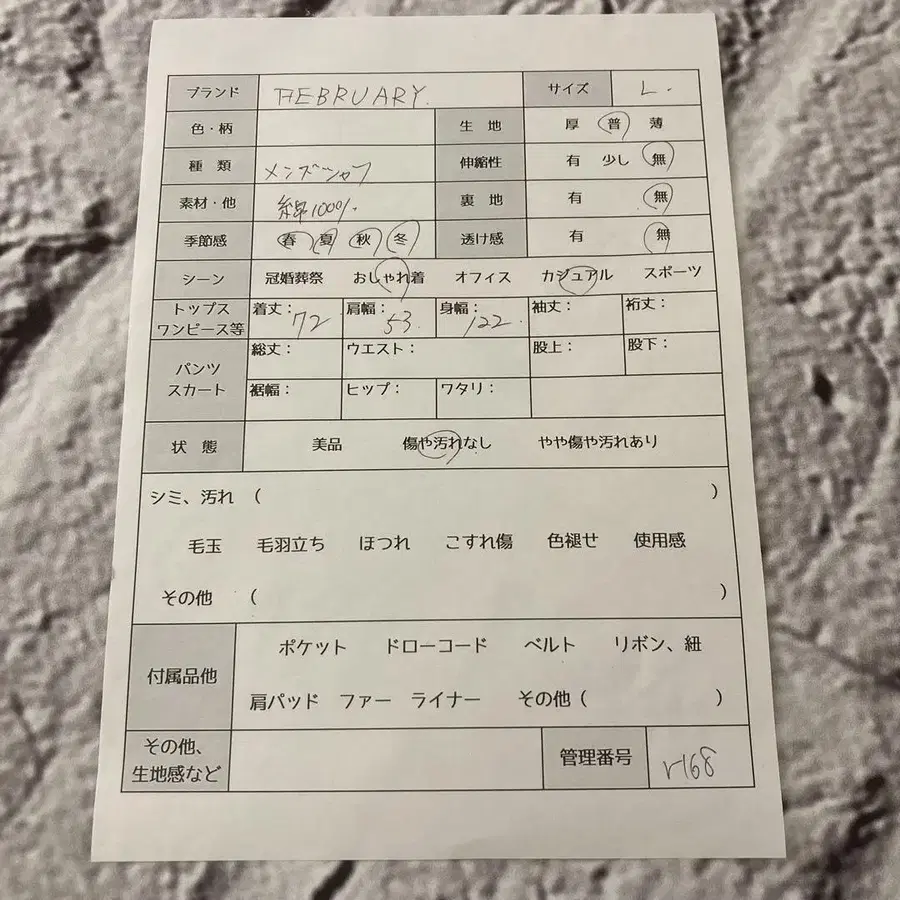 ブランド FEBRUARY. サイズ L.
色・柄 生地 厚 普 薄
種類 メンズシャツ 伸縮性 有 少し 無
素材・他 綿100%. 裏地 有 無
季節感 春 夏 秋 冬 透け感 有 無
シーン 冠婚葬祭 おしゃれ着 オフィス カジュアル スポーツ
トップス ワンピース等 着丈：72 肩幅：53. 身幅：122. 袖丈： 裄丈：
パンツ スカート 総丈： ウエスト： 股上： 股下：
裾幅： ヒップ： ワタリ：
状態 美品 傷や汚れなし やや傷や汚れあり
シミ、汚れ ( )
毛玉 毛羽立ち ほつれ こすれ傷 色褪せ 使用感
その他 ( )
付属品他 ポケット ドローコード ベルト リボン、紐
肩パッド ファー ライナー その他 ( )
その他、 生地感など 管理番号 r168